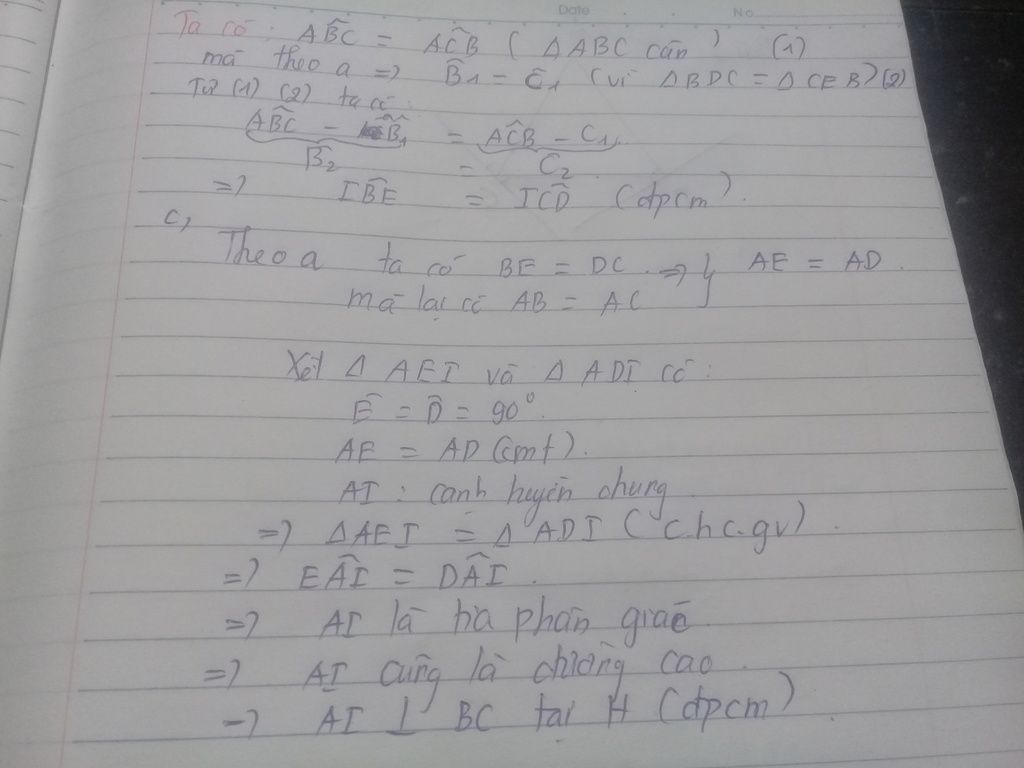 Date . . No
Ta có : AB̂C = AĈB ( Δ ABC cân ) (1)
mà theo a => B̂1 = Ĉ1 (vì Δ BDC = Δ CEB) (2)
Từ (1) (2) ta có :
AB̂C - B̂1 = AĈB - C1
B̂2 = C2
=> IB̂E = IĈD (đpcm).
c,
Theo a ta có BE = DC => } AE = AD.
mà lại có AB = AC
Xét Δ AEI và Δ ADI có :
Ê = D̂ = 90°.
AE = AD (cmt).
AI : cạnh huyền chung
=> ΔAEI = Δ ADI ( c.hc.gv) .
=> EÂI = DÂI .
=> AI là tia phân giác
=> AI cũng là đường cao .
=> AI ⊥ BC tại H (đpcm)